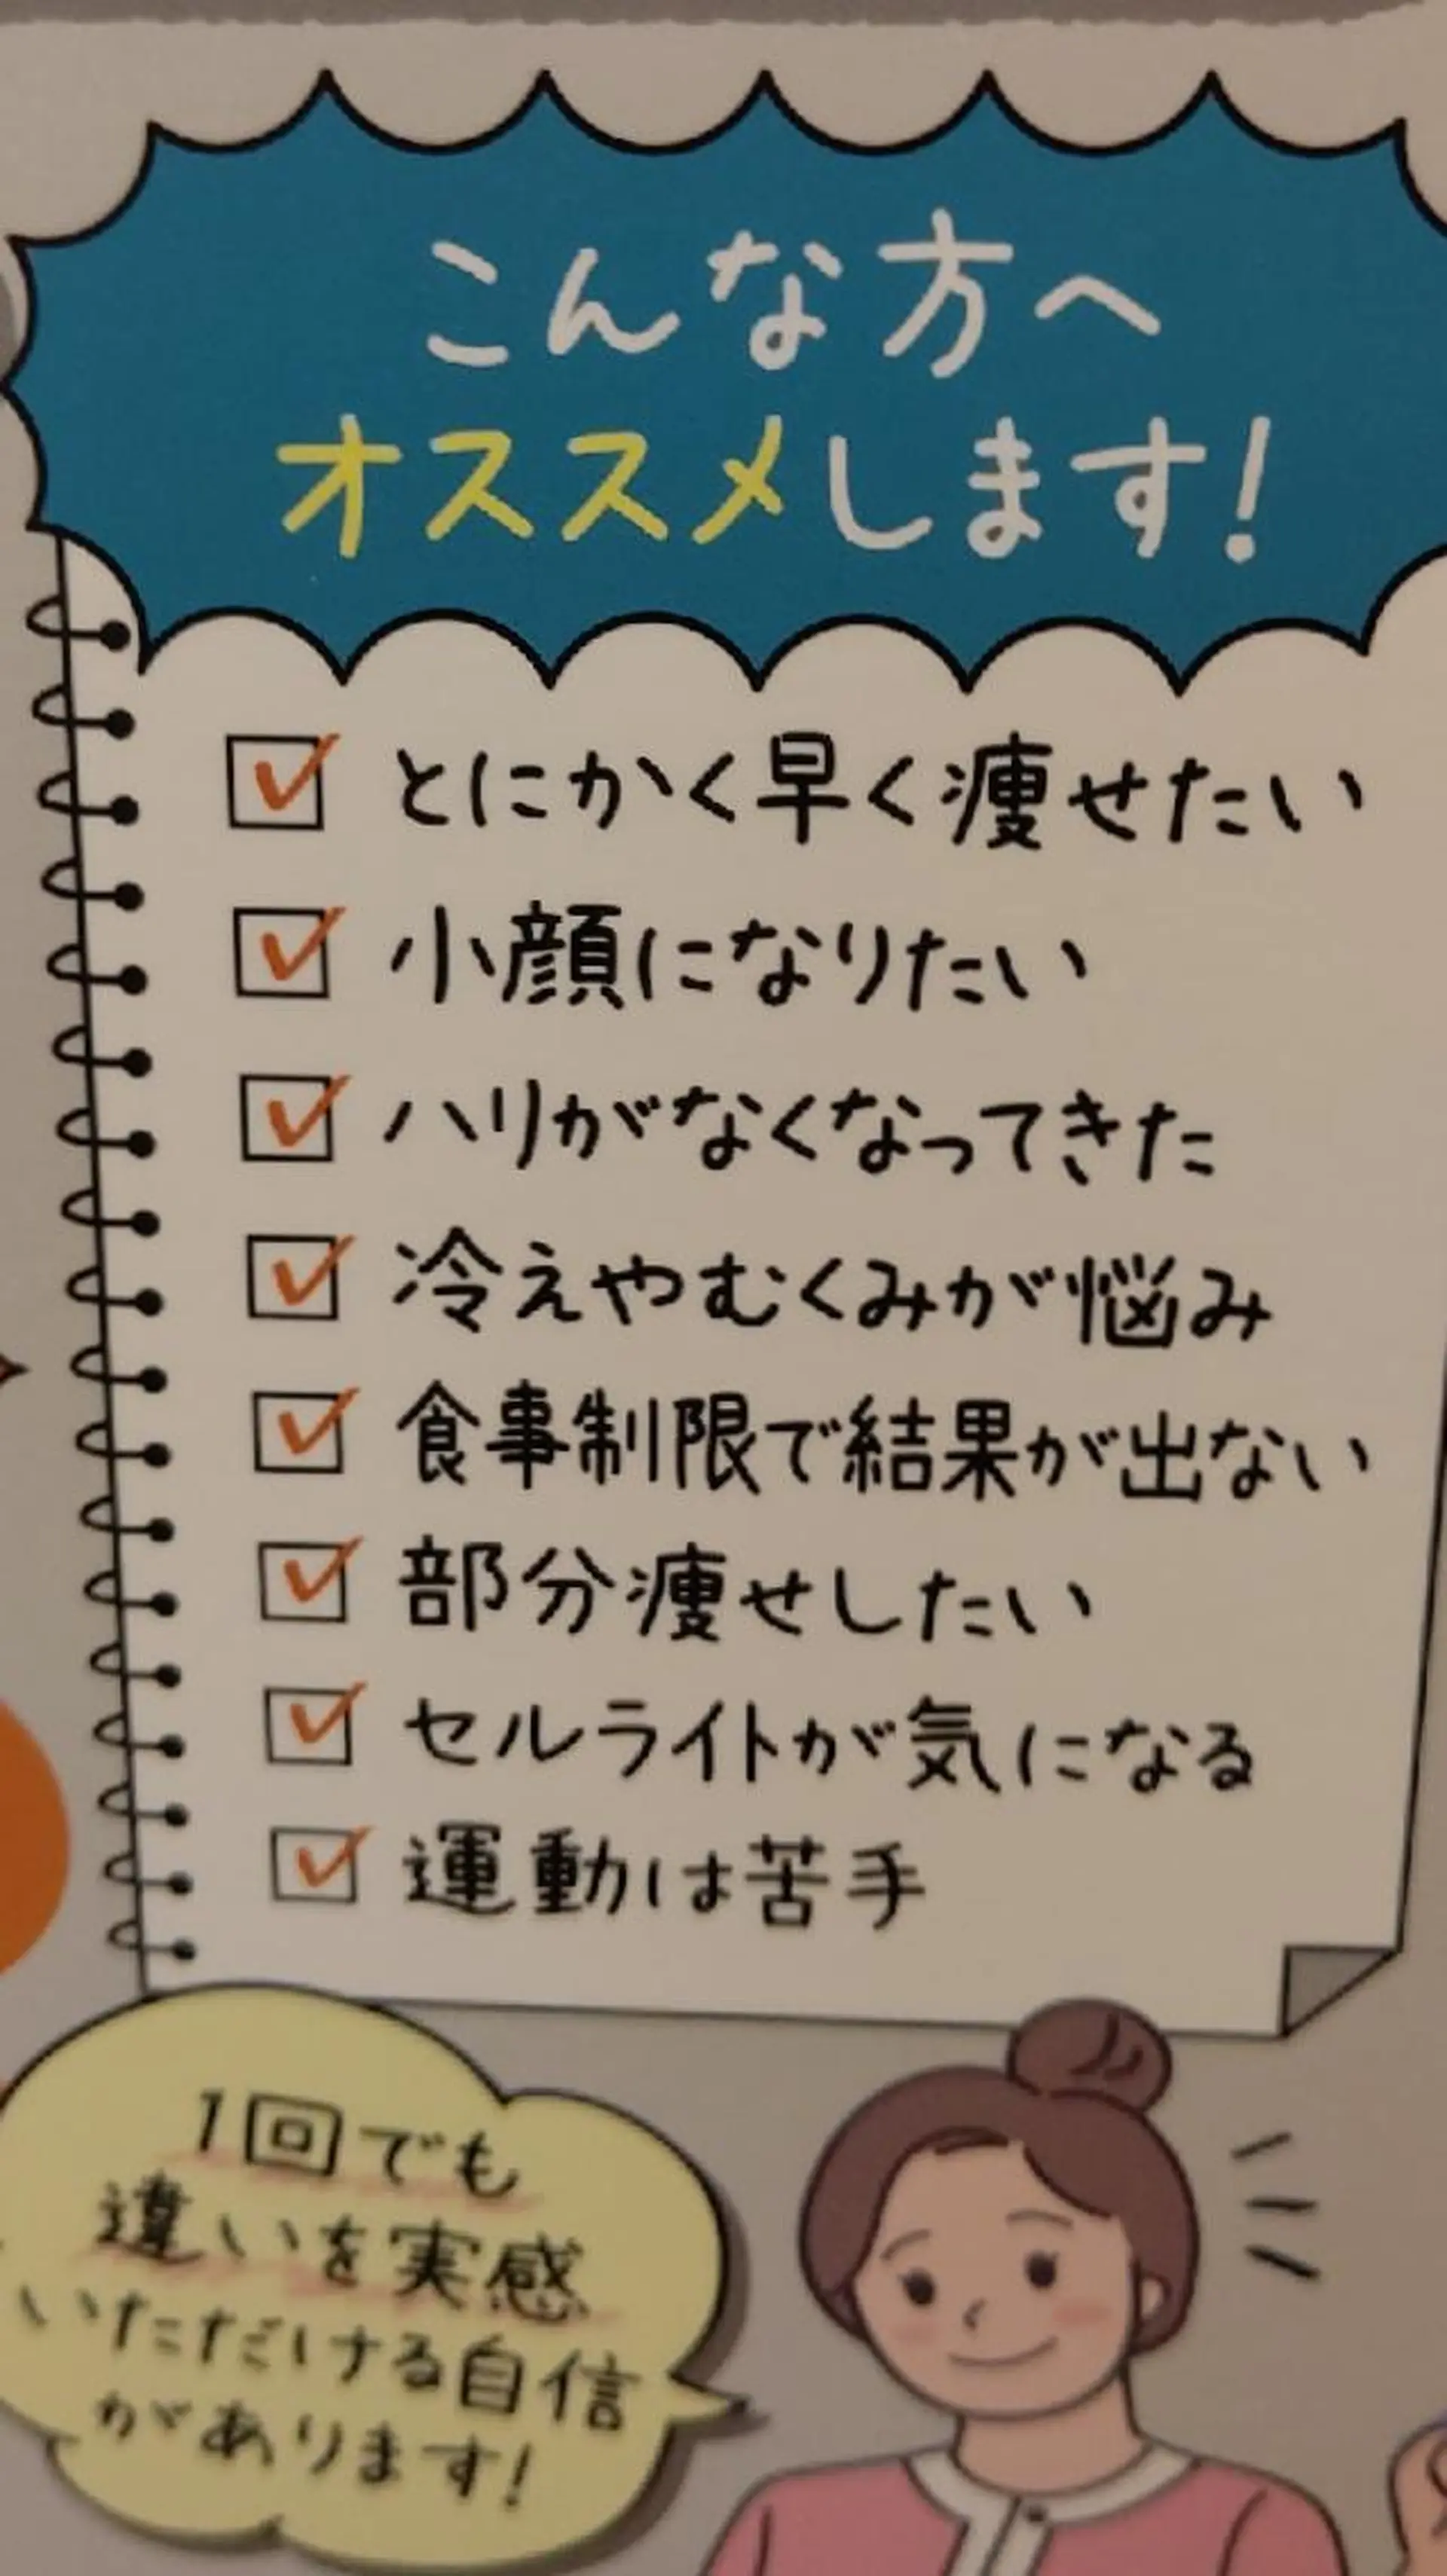 こんな方へ
オススメします!
とにかく早く痩せたい
小顔になりたい
ハリがなくなってきた
冷えやむくみが悩み
食事制限で結果が出ない
部分痩せしたい
セルライトが気になる
運動は苦手
1回でも
違いを実感
いただける自信
があります!